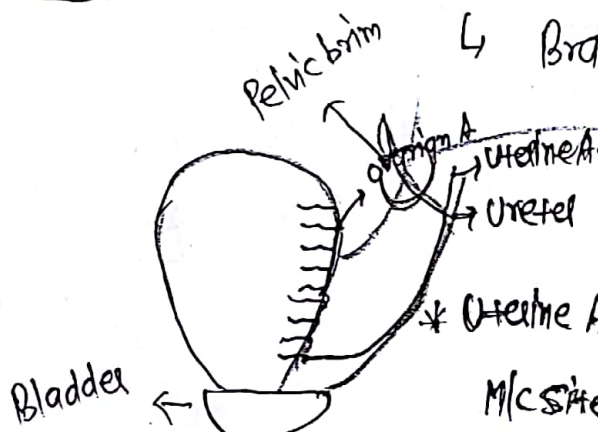 Pelvic brim
↳ Bra
Ovarian A
→ Uterine A
→ Ureter
* Uterine A
M/C Site
Bladder ←